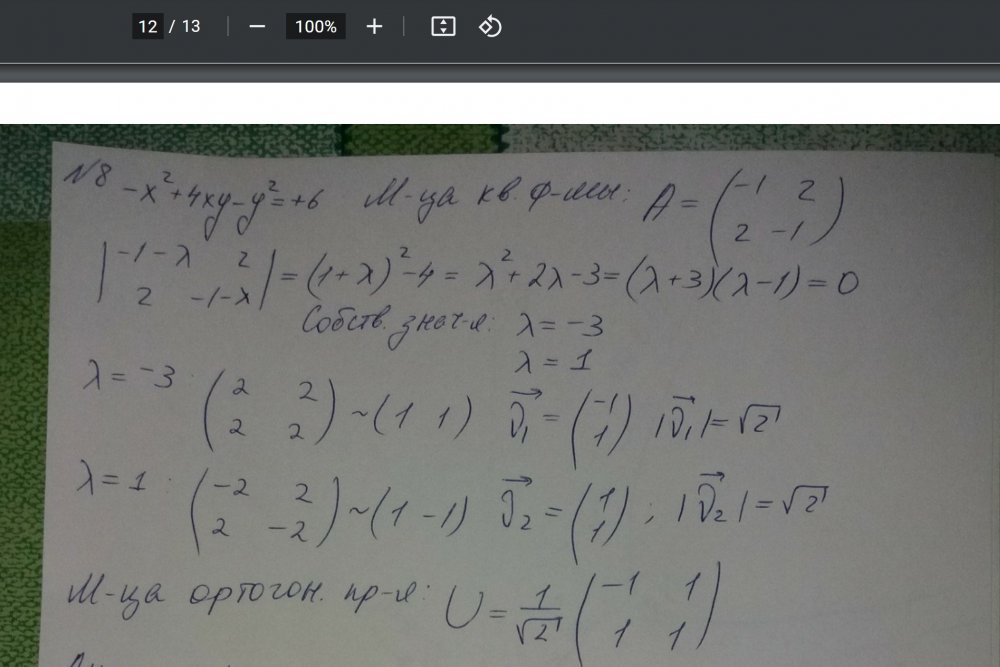 12 / 13 100%
N8 -x²+4xy-y²=+6 М-ца кв. ф-мы: A = (-1 2
2 -1)
|-1-λ 2
2 -1-λ| = (1+λ)²-4 = λ²+2λ-3=(λ+3)(λ-1)=0
Собств. знач-я: λ=-3
λ = 1
λ = -3: (2 2
2 2) ~ (1 1) v₁ = (-1
1) |v₁|=√2
λ = 1: (-2 2
2 -2) ~ (1 -1) v₂ = (1
1); |v₂|=√2
М-ца ортогон. пр-я: U = 1/√2 (-1 1
1 1)